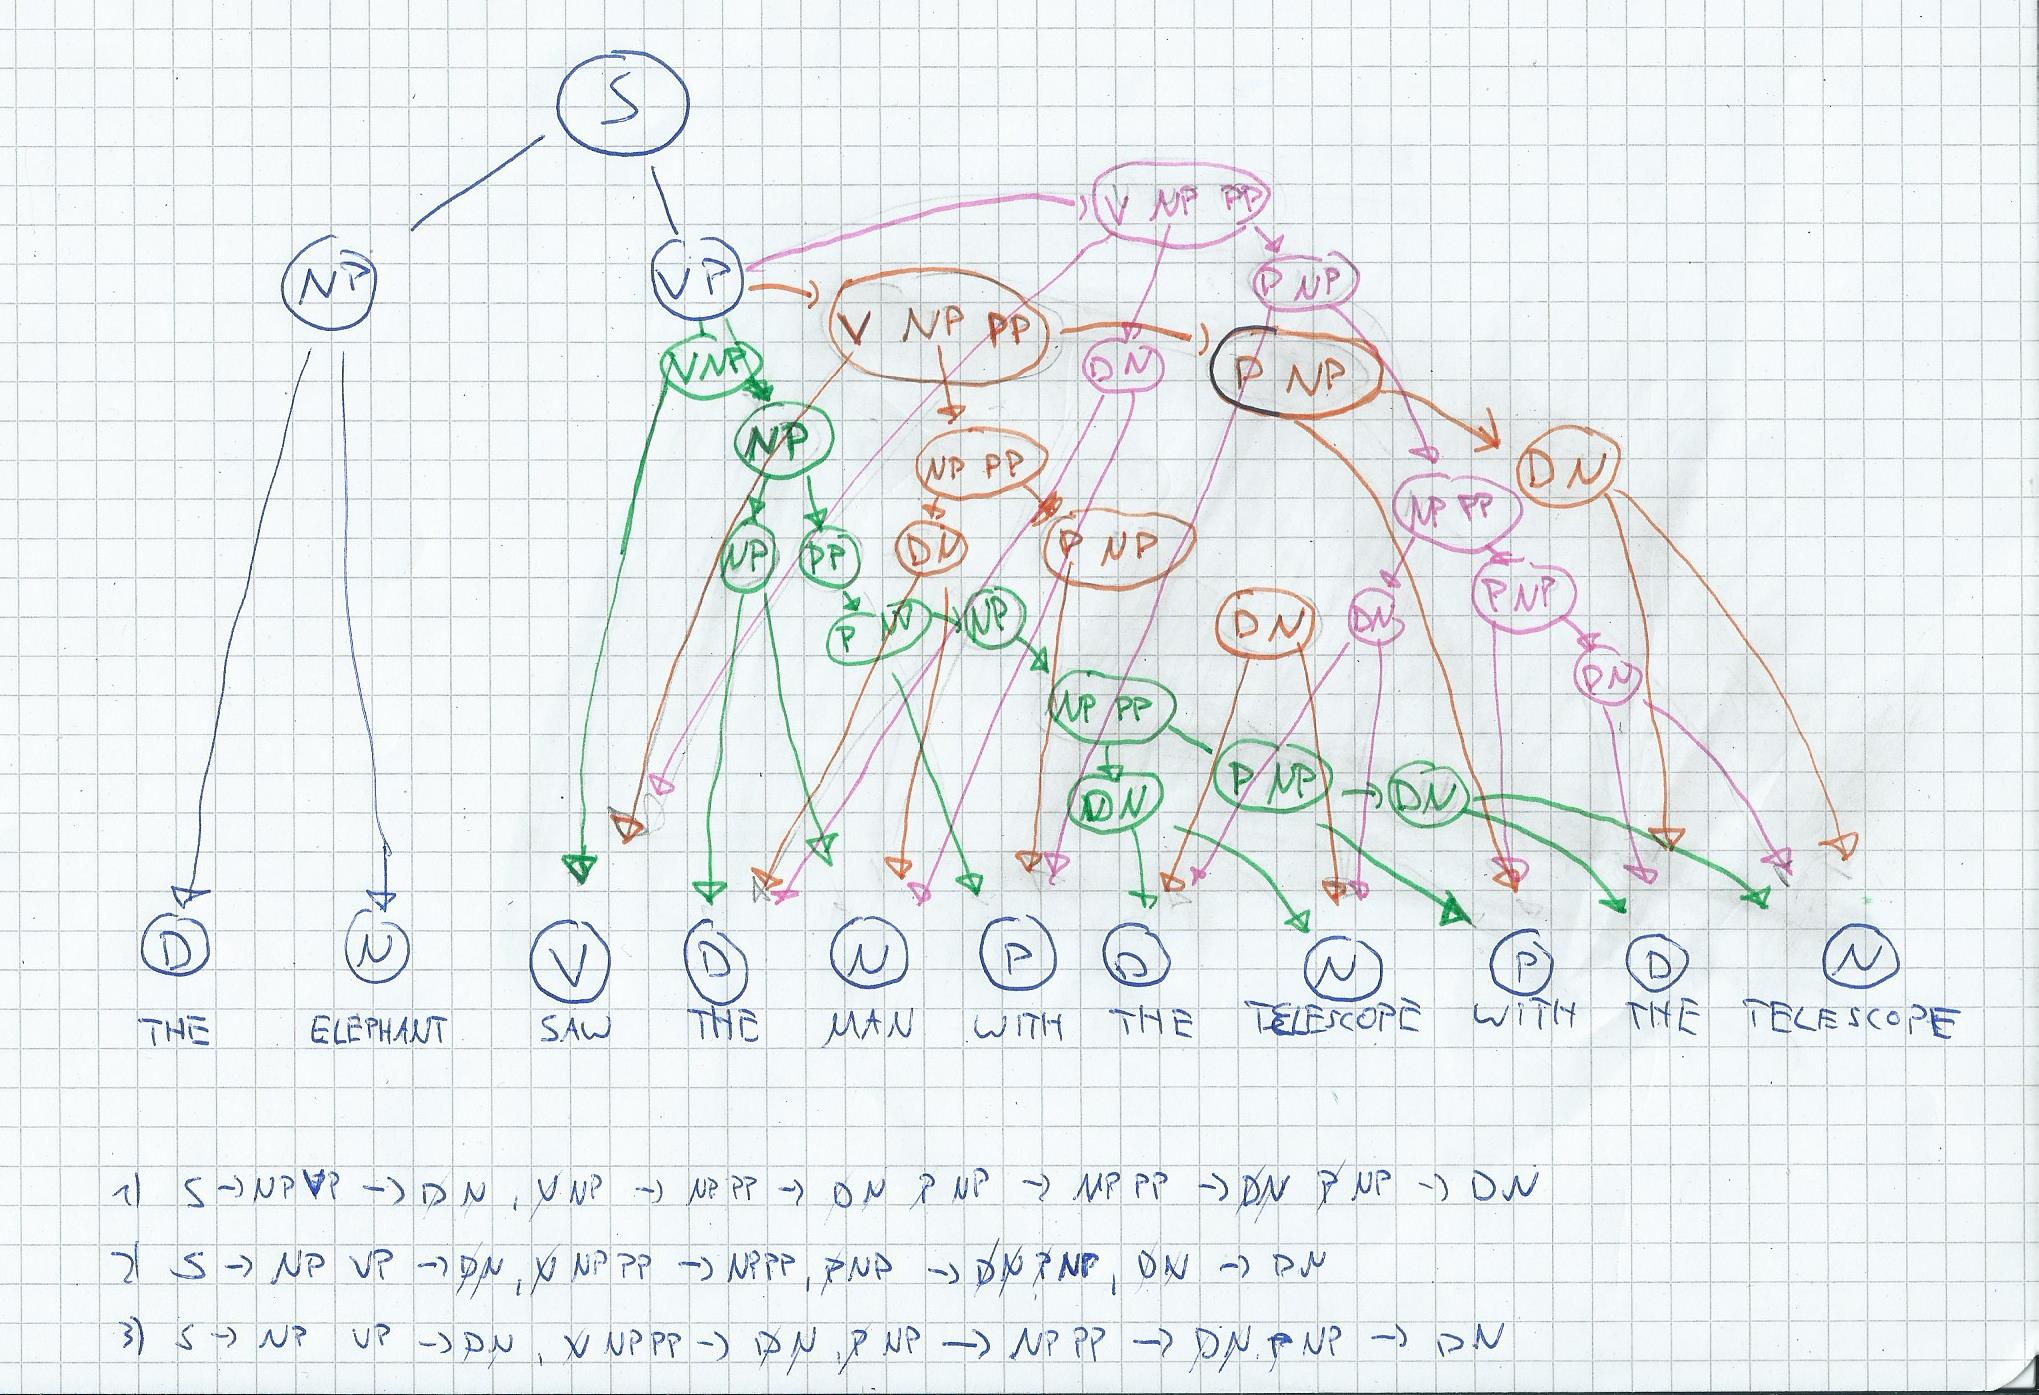 S
V NP PP
NP
VP
P NP
V NP PP
V NP
D N
P NP
NP
NP PP
D N
NP PP
NP
PP
D N
P NP
P NP
P NP
NP
D N
D N
D N
NP PP
D N
P NP
D N
D N
D N V D N P D N P D N
THE ELEPHANT SAW THE MAN WITH THE TELESCOPE WITH THE TELESCOPE
1) S → NP VP → D N , V NP → NP PP → D N P NP → NP PP → D N P NP → D N
2) S → NP VP → D N , V NP PP → NP PP , P NP → D N P NP , D N → D N
3) S → NP VP → D N , V NP PP → D N , P NP → NP PP → D N , P NP → D N